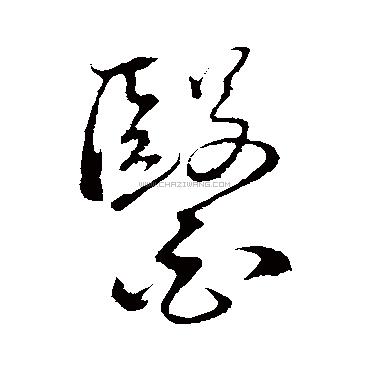 醫
WWW.CHAZIWANG.COM